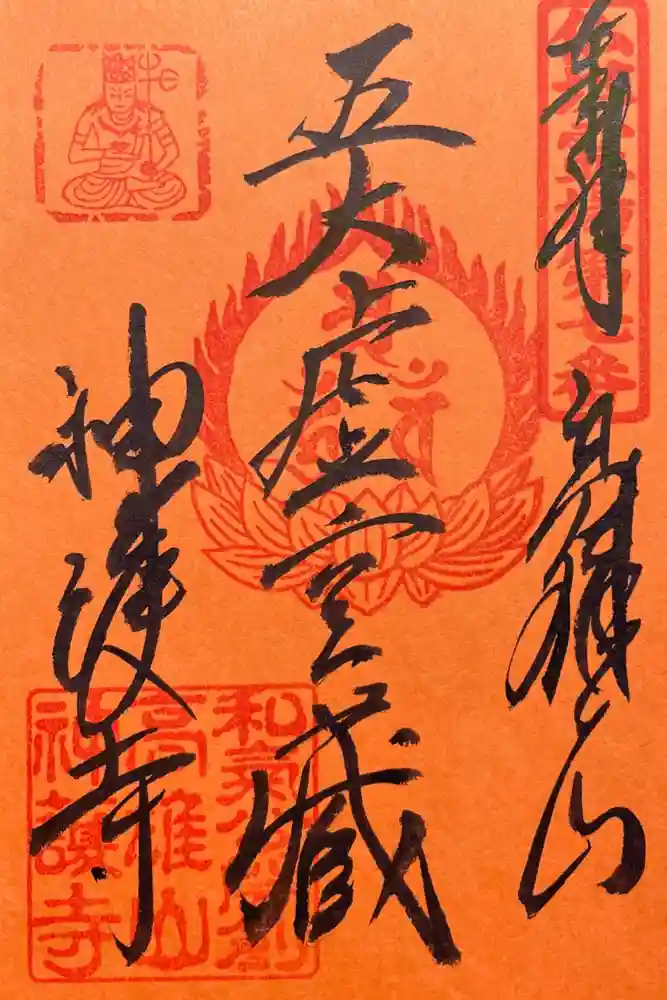 奉拝 高雄山
五大虚空蔵
神護寺
高雄山
神護寺